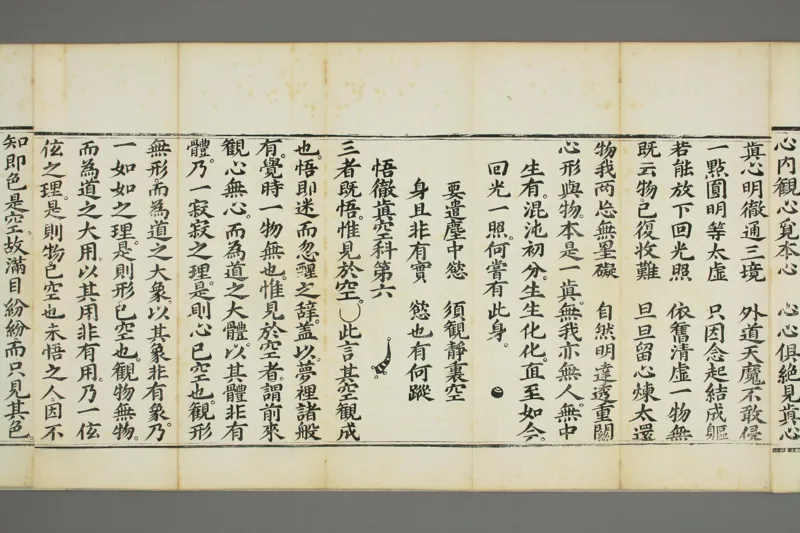 心內觀心覔本心　心心俱絕見眞心
眞心明徹通三境　外道天魔不敢侵
一㸃圓明等太虛　只因念起結成軀
若能放下回光照　依舊清虛一物無
旣云物已復收難　旦旦留心煉太還
物我兩忘無罣礙　自然明達透重關
心形與物。本是一眞。無我亦無人。無中
生有。混沌初分。生生化化。直至如今。
回光一照。何嘗有此身。
要遣塵中慾　須觀靜裏空
身且非有實　慾也有何蹤
悟徹眞空科第六
三者旣悟。惟見於空。〇此言其空觀成
也。悟則迷而忽醒之辭。葢以夢裡諸般
有。覺時一物無也。惟見於空者。謂前來
觀心無心。而為道之大體以其體非有
體。乃一寂寂之理。是則心已空也。觀形
無形而為道之大象。以其象非有象。乃
一如如之理。是則形已空也。觀物無物。
而為道之大用。以其用非有用。乃一伭
伭之理。是則物已空也未悟之人。因不
知即色是空。故滿目紛紛而只見其色。